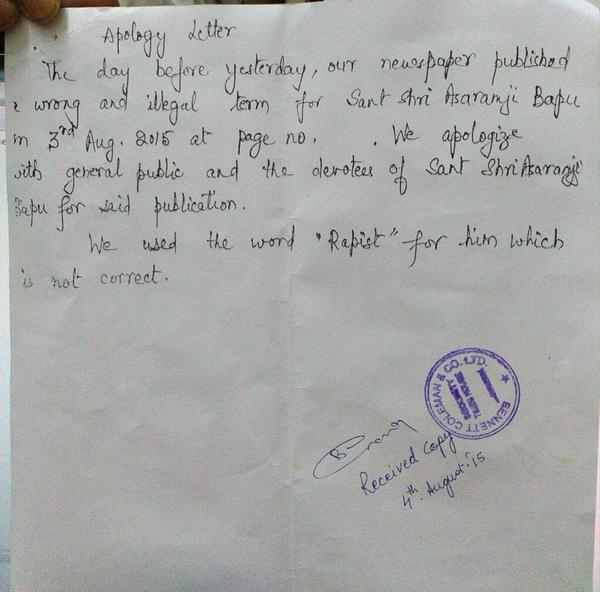 Apology Letter
The day before yesterday, our newspaper published
wrong and illegal term for Sant Shri Asaramji Bapu
3rd Aug. 2015 at page no. . We apologize
with general public and the devotees of Sant Shri Asaramji
Bapu for said publication.
We used the word "Rapist" for him which
is not correct.
BENNETT COLEMAN & CO. LTD.
SECURITY
TIMES HOUSE
Received copy
4th August.'15